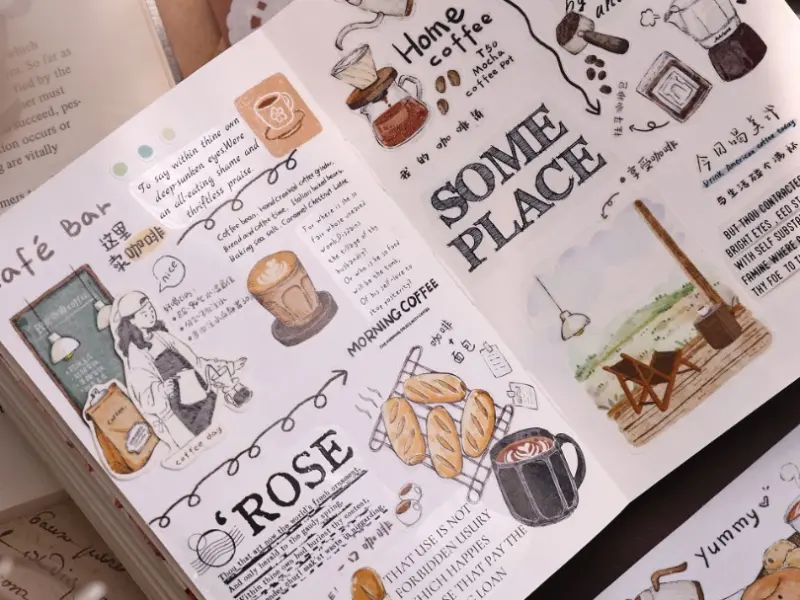 which
So far as
fied by the
her must
succeed, pes-
ation occurs or
g are vitally
To say within thine own
deep-sunken eyes.Were
an all-eating shame and
thriftless praise.
Café Bar
这里
卖 咖啡
nice
Coffee bean. hand crushed coffee grinder.
Bread and coffee time. Italian baked beans.
Baking sea salt. Caramel chestnut latte
For where is she so
fair whose uneared
womb.Disdains
the tillage of thy
husbandry?
Or who is he so fond
will be the tomb,
Of his self-love to
stop posterity?
MORNING COFFEE
咖啡
+
面包
Coffee
coffee day
'ROSE
Thou that art now the world's fresh ornament,
And only herald to the gaudy spring,
Within thine own bud buriest thy content,
THAT USE IS NOT
FORBIDDEN USURY
WHICH HAPPIES
THOSE THAT PAY THE
LOAN
Home
coffee
TSO
Mocha
coffee pot
by
我的咖啡酱
SOME
PLACE
享受咖啡
今日喝美式
Drink American coffee today
BUT THOU CONTRACTED
BRIGHT EYES, FEED'ST
WITH SELF SUBSTA
FAMINE WHERE
THY FOE TO T
yummy